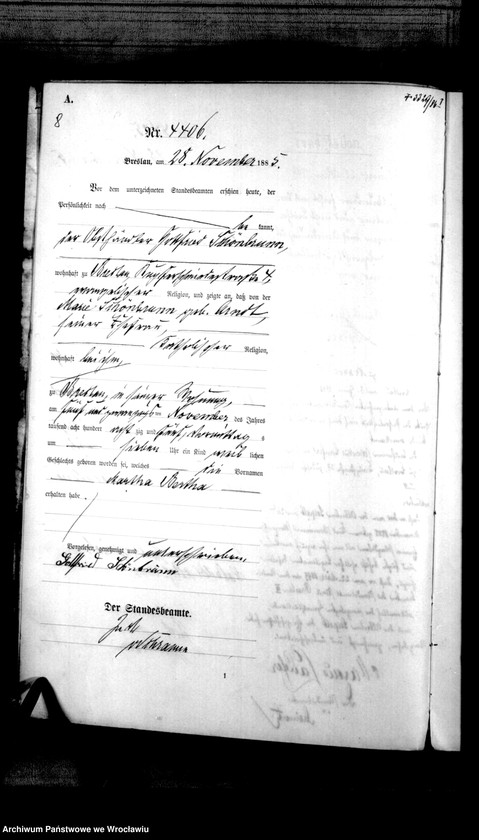 A.
8
Nr. 4406.
Breslau, am 28. November 1885.
Vor dem unterzeichneten Standesbeamten erschien heute, der
Persönlichkeit nach
be kannt,
der Obsthändler Gottfried Schönbrunn,
wohnhaft zu Breslau, Kupferschmiedestraße 4,
evangelischer Religion, und zeigte an, daß von der
Marie Schönbrunn geb. Arndt,
seiner Ehefrau,
katholischer Religion,
wohnhaft bei ihm,
zu Breslau, in seiner Wohnung,
am fünf und zwanzigsten November des Jahres
tausend acht hundert acht zig und fünf, Vormittags
um sieben Uhr ein Kind weib lichen
Geschlechts geboren worden sei, welches die Vornamen
Martha Bertha
erhalten habe.
Vorgelesen, genehmigt und unterschrieben.
Gottfried Schönbrunn
Der Standesbeamte.
1
Archiwum Państwowe we Wrocławiu